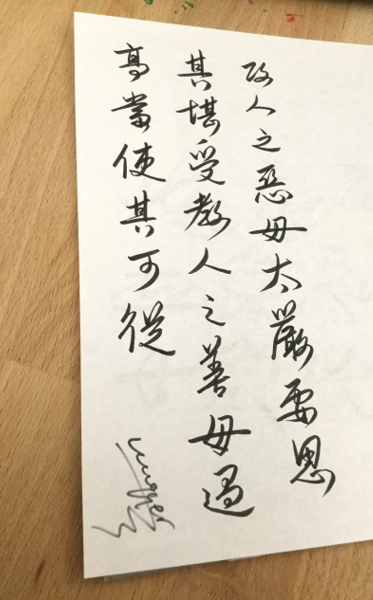 攻人之惡毋太嚴要思
其堪受教人之善毋過
高當使其可從